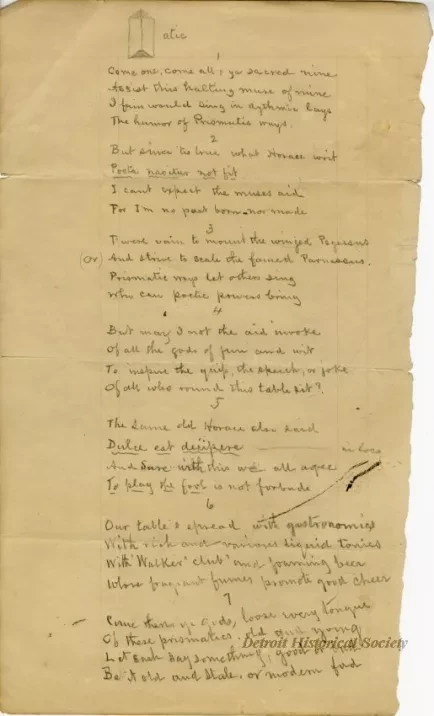 atic
1
Come one, come all, ye sacred nine
Assist this halting muse of mine
I fain would sing in rythmic lays
The humor of Prismatic ways.
2
But since tis true what Horace writ
Poeta nascitur not fit
I cant expect the muses aid
For I'm no poet born nor made
3
T'were vain to mount the winged Pegasus
(or) And strive to scale the famed Parnassus.
Prismatic ways let others sing
Who can poetic powers bring
4
But may I not the aid invoke
Of all the gods of fun and wit
To inspire the quip, the speech, or joke
Of all who round this table sit?
5
The same old Horace also said
Dulce est decipere in loco
And sure with this we all agree
To play the fool is not forbade
6
Our table's spread with gastronomics
With rich and various liquid tonics
With "Walker" club" and foaming beer
Whose fragrant fumes promote good cheer
7
Come then ye Gods, loose every tongue
Of these prismatics old and young
Let each say something, good or
Be it old and stale, or modern fad
Detroit Historical Society